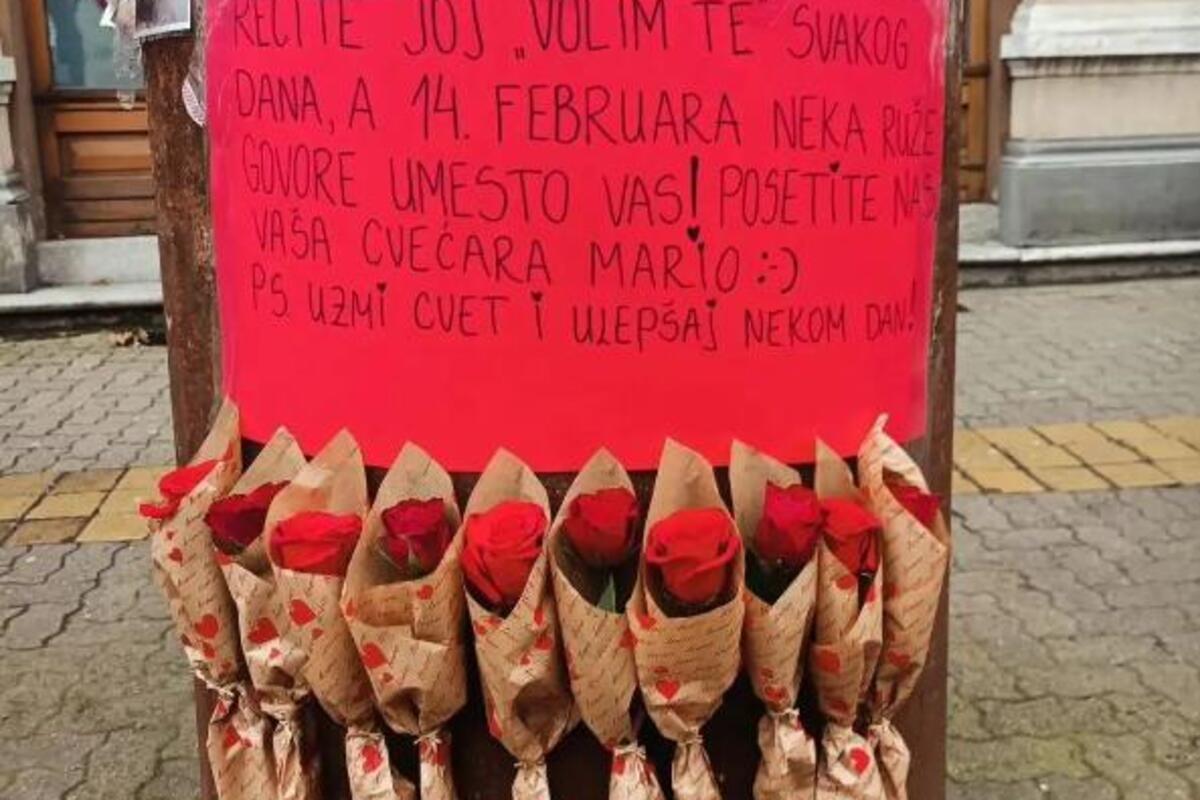 RECITE JOJ „VOLIM TE" SVAKOG
DANA, A 14. FEBRUARA NEKA RUŽE
GOVORE UMESTO VAS! POSETITE NAS
VAŠA CVEĆARA MARIO :-)
PS UZMI CVET I ULEPŠAJ NEKOM DAN!